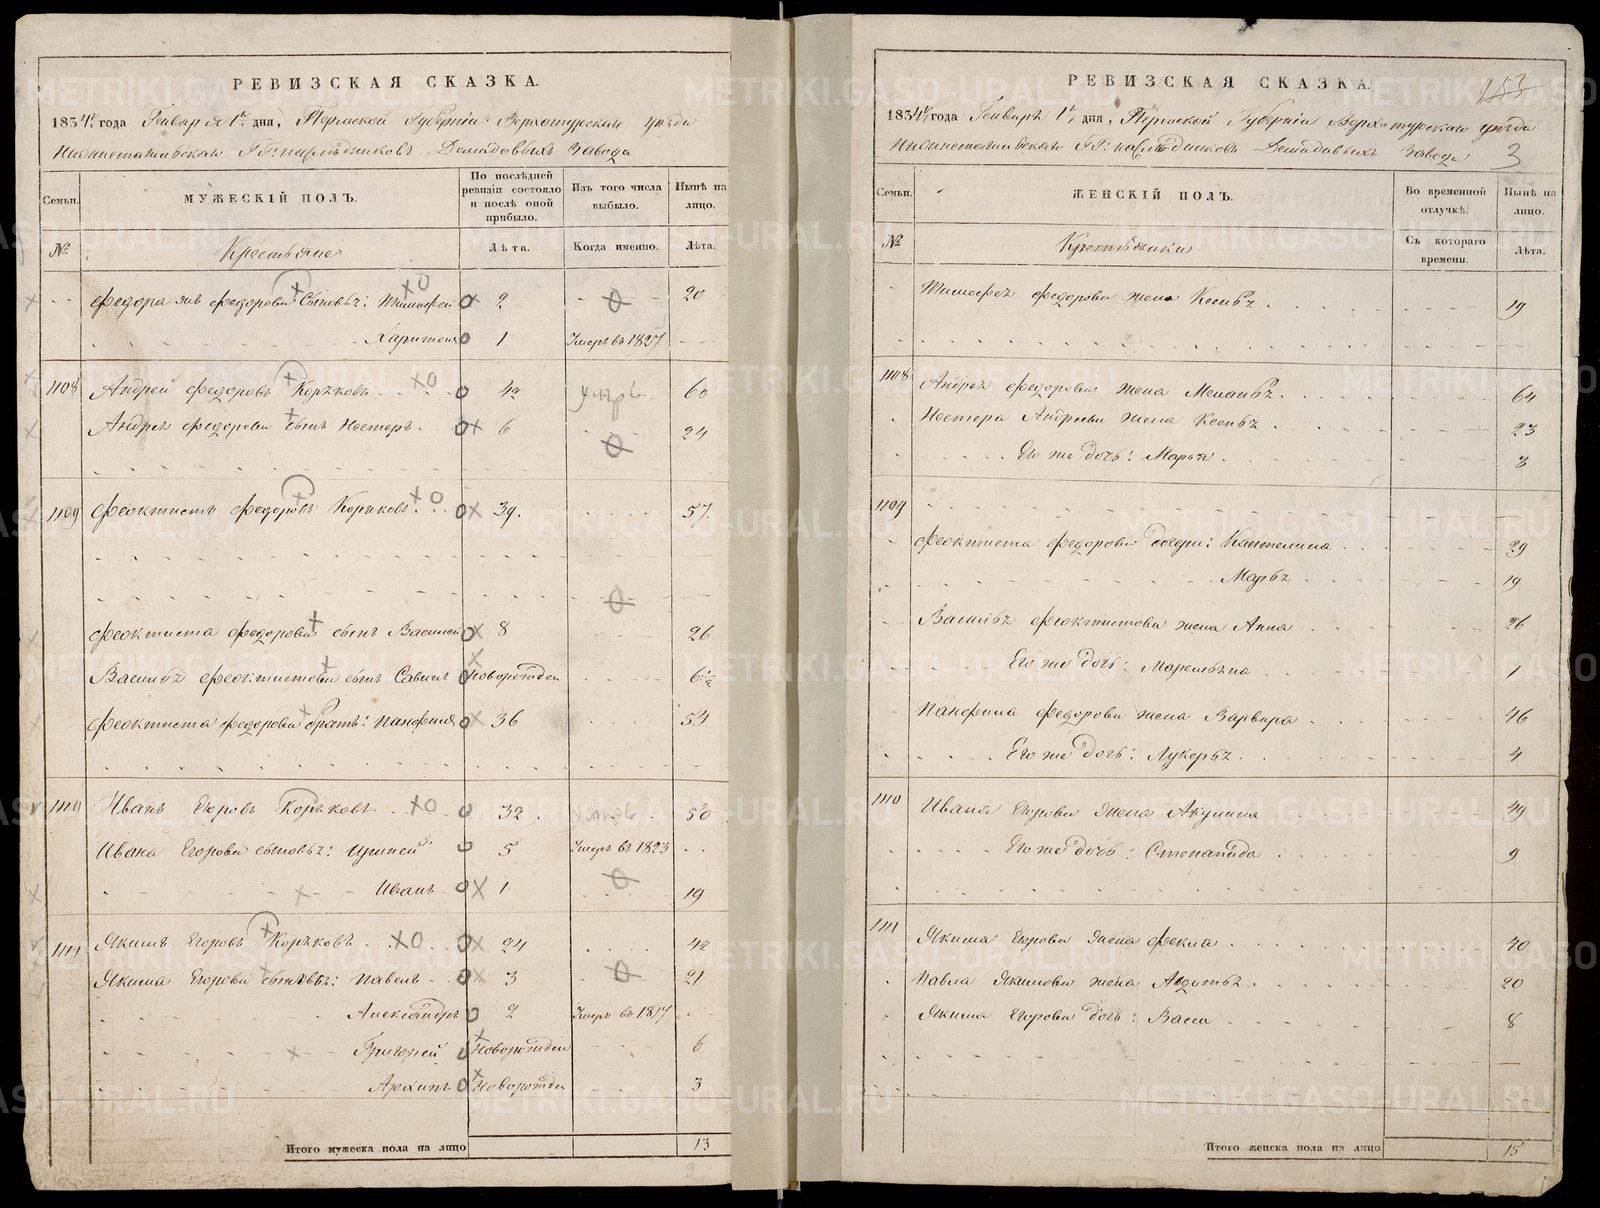 РЕВИЗСКАЯ СКАЗКА.
1834 года Генваря 1 дня, Пермской Губернiи Верхотурскаго уѣзда
ГГ: наслѣдниковъ Демидовыхъ завода
Семьи.
МУЖЕСКIЙ ПОЛЪ.
По послѣдней ревизiи состояло и послѣ оной прибыло.
Изъ того числа выбыло.
Нынѣ на лицо.
№
Крестьяне
Лѣта.
Когда именно.
Лѣта.
Федора Федорова Сыновья: Тимофей 2 20
Харитонъ 1 Умеръ въ 1827
1108 Андрей Федоровъ Корѣковъ 42 умръ 60
Андрея Федорова сынъ Нестеръ 6 24
1109 Феоктистъ Федоровъ Корѣковъ 39. 57.
Феоктиста Федорова сынъ Василей 8 26
Василья Феоктистова сынъ Савинъ Новорожден 6½
Феоктиста Федорова братъ: Панфилъ 36 54
1110 Иванъ Егоровъ Корѣковъ 32. 50
Ивана Егорова сыновья: 5 Умеръ въ 1823
Иванъ 1 19
1111 Якимъ Егоровъ Корѣковъ 24 42
Якима Егорова сыновья: Павелъ 3 21
Александръ 2 Умеръ въ 1817
Григорей Новорожден 6
Архипъ Новорожден 3
Итого мужеска пола на лицо 13
РЕВИЗСКАЯ СКАЗКА.
153
1834 года Генваря 1 дня, Пермской Губернiи Верхотурскаго уѣзда
ГГ: наслѣдниковъ Демидовыхъ завода 3
Семьи.
ЖЕНСКIЙ ПОЛЪ.
Во временной отлучкѣ.
Нынѣ на лицо.
№
Крестьянки
Съ котораго времени.
Лѣта.
Тимофея Федорова жена Ксенья 19
1108 Андрея Федорова жена Меланья 64
Нестера Андреева жена Ксенья 23
Его же дочь: Марья 3
1109
Феоктиста Федорова дочери: Капитолина 29
Марья 19
Василья Феоктистова жена Анна 26
Его же дочь: 1
Панфила Федорова жена Варвара 46
Его же дочь: Лукерья 4
1110 Ивана Егорова жена Акулина 49
Его же дочь: Степанида 9
1111 Якима Егорова жена Фекла 40
Павла Якимова жена Авдотья 20
Якима Егорова дочь: Васса 8
Итого женска пола на лицо 15
METRIKI.GASO-URAL.RU